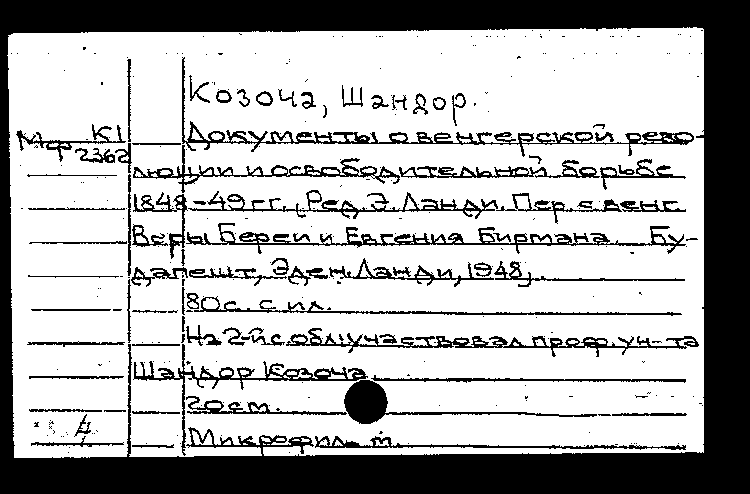 Козоча, Шандор.
Мф К1 2362
Документы о венгерской рево-
люции и освободительной борьбе
1848-49 гг. (Ред. Э. Ланди. Пер. с венг.
Веры Береи и Евгения Бирмана. Бу-
дапешт, Эден. Ланди, 1948,.
80 с. с ил.
На 2-й с. обл: участвовал проф. ун-та
Шандор Козоча.
20 см.
Микрофильм.
4